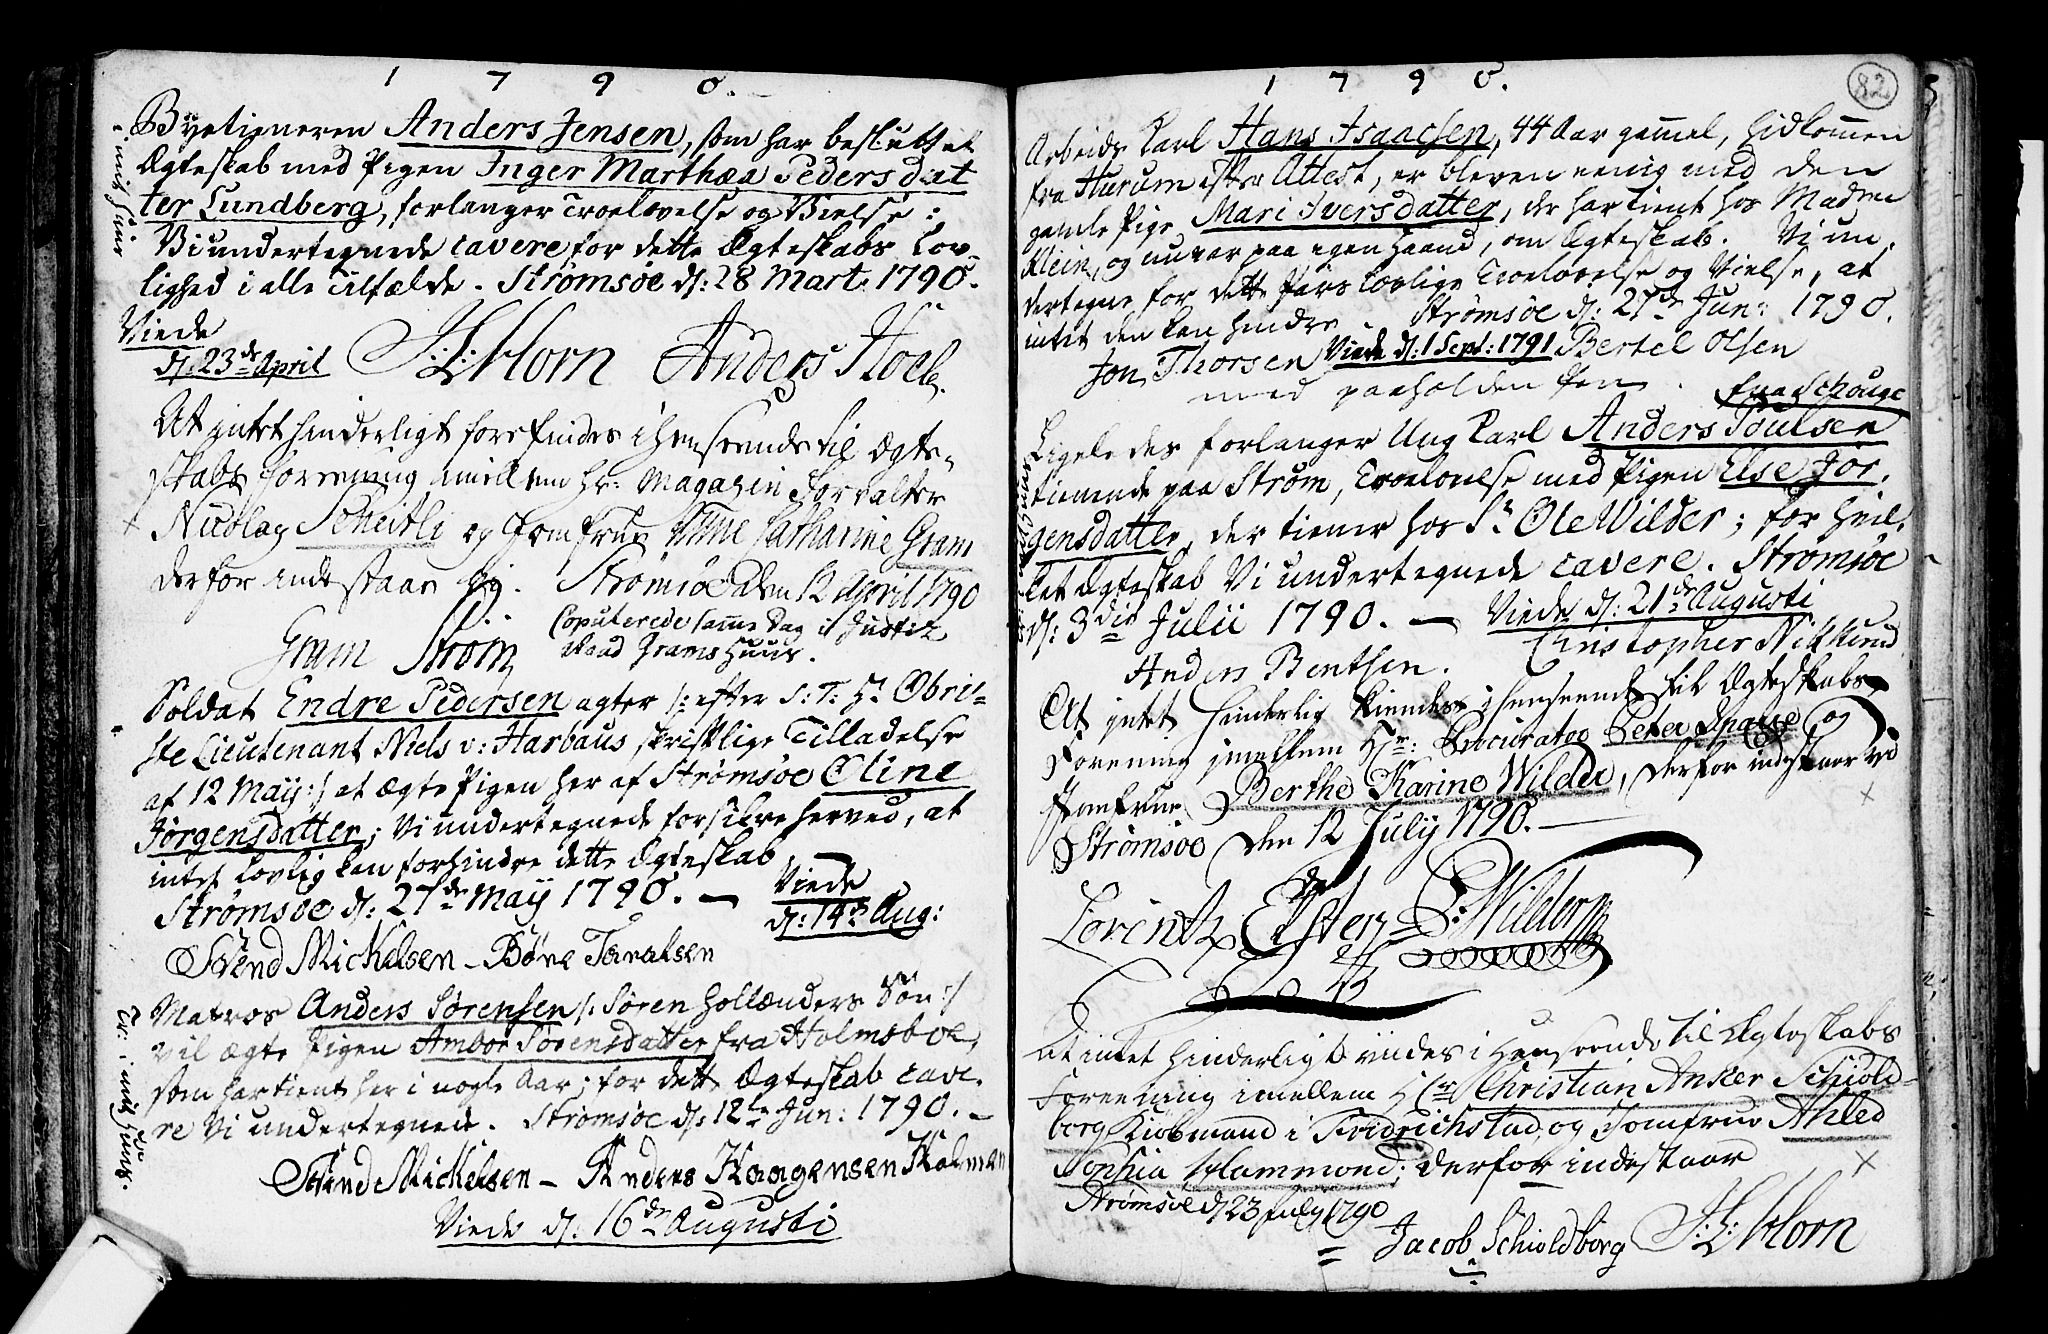 1 7 9 0.
Byetieneren Anders Jensen, som har besluttet
Ægteskab med Pigen Inger Marthæa Peders dat
ter Lundberg, forlanger Troelovelse og Vielse:
Vi undertegnede cavere for dette Ægteskabs Lov-
lighed i alle Tilfælde. Strømsøe d: 28 Mart: 1790.
i mit Huus
Viede
d: 23de April
J: L: Horn Anders Hoel
At intet hinderligt forefindes i henseende til Ægte-
skabs forening imellem Hr: Magazin Forvalter
Nicolay Scheitli og Jomfrue Anne Catharine Gram
derfor indestaar vj. Strømsøe den 12 April 1790
Gram Strøm
Copulerede samme Dag i Justiz
Raad Grams Huus.
Soldat Endre Pedersen agter /: efter S: T: Hr Obrist-
ste Lieutenant Niels v: Harbaus skriftlige Tilladelse
af 12 May :/ at ægte Pigen her af Strømsøe Oline
Jørgensdatter; Vi undertegnede forsikre herved, at
intet lovlig kan forhindre dette Ægteskab
Strømsøe d: 27de May 1790. —
Viede
d: 14de Aug:
Svend Michelsen - Børe Taralsen
Matros Anders Sørensen /: Søren Hollænders Søn :/
vil ægte Pigen Ambor Sørensdatter fra Holmsboe,
som har tient her i nogle Aar; for dette Ægteskab cave-
re Vi undertegnede. Strømsøe d: 12te Jun: 1790. -
Tr: i mit Huus.
Svend Michelsen - Anders Haagensen Holman
Viede d: 16de Augusti
1 7 9 0.
82
Arbeids Karl Hans Isaacsen, 44 Aar gammel, hidkommen
fra Hurum efter Attest, er bleven eenig med den
gamle Pige Mari Iversdatter, der har tient hos Madme
Klein, og nu var paa egen Haand, om Ægteskab. Vi un-
dertegne for dette Pars lovlige Troelovelse og Vielse, at
intet den kan hindre. Strømsøe d: 27de Jun: 1790.
Jon Thorsen Viede d: 1 Sept: 1791 Bertel Olsen
med paaholden Pen. fra Schouge
Ligeledes forlanger Ung Karl Anders Poulsen
tienende paa Strøm, Troelovelse med Pigen Else Jør-
gensdatter, der tiener hos Sr Ole Wilder; for hvil-
ket Ægteskab Vi undertegnede cavere. Strømsøe
d: 3die Julii 1790. — Viede d: 21de Augusti
Anders Bentsen. Christopher
At intet hinderlig kiendes i henseende til Ægteskabs
Forening imellem Hr: Procurator Peter og
Jomfrue Berthe Karine Wilder, derfor indestaar vi
Strømsøe den 12 July 1790. —
Lorentz
Wilder
At intet hinderligt viides i Henseende til Ægteskabs
Foreening imellem Hr Christian Anker Schiold-
borg Kiøbmand i Fridrichstad og Jomfrue Ahled
Sophia Hammond; derfor indestaar
Strømsøe d 23 July 1790
Jacob Schioldborg J: L: Horn